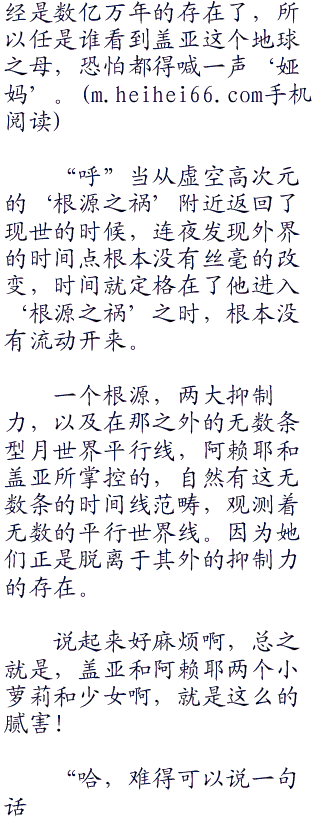 经是数亿万年的存在了，所
以任是谁看到盖亚这个地球
之母，恐怕都得喊一声‘娅
妈’。(m.heihei66.com手机
阅读)
“呼”当从虚空高次元
的‘根源之祸’附近返回了
现世的时候，连夜发现外界
的时间点根本没有丝毫的改
变，时间就定格在了他进入
‘根源之祸’之时，根本没
有流动开来。
一个根源，两大抑制
力，以及在那之外的无数条
型月世界平行线，阿赖耶和
盖亚所掌控的，自然有这无
数条的时间线范畴，观测着
无数的平行世界线。因为她
们正是脱离于其外的抑制力
的存在。
说起来好麻烦啊，总之
就是，盖亚和阿赖耶两个小
萝莉和少女啊，就是这么的
腻害！
“哈，难得可以说一句
话